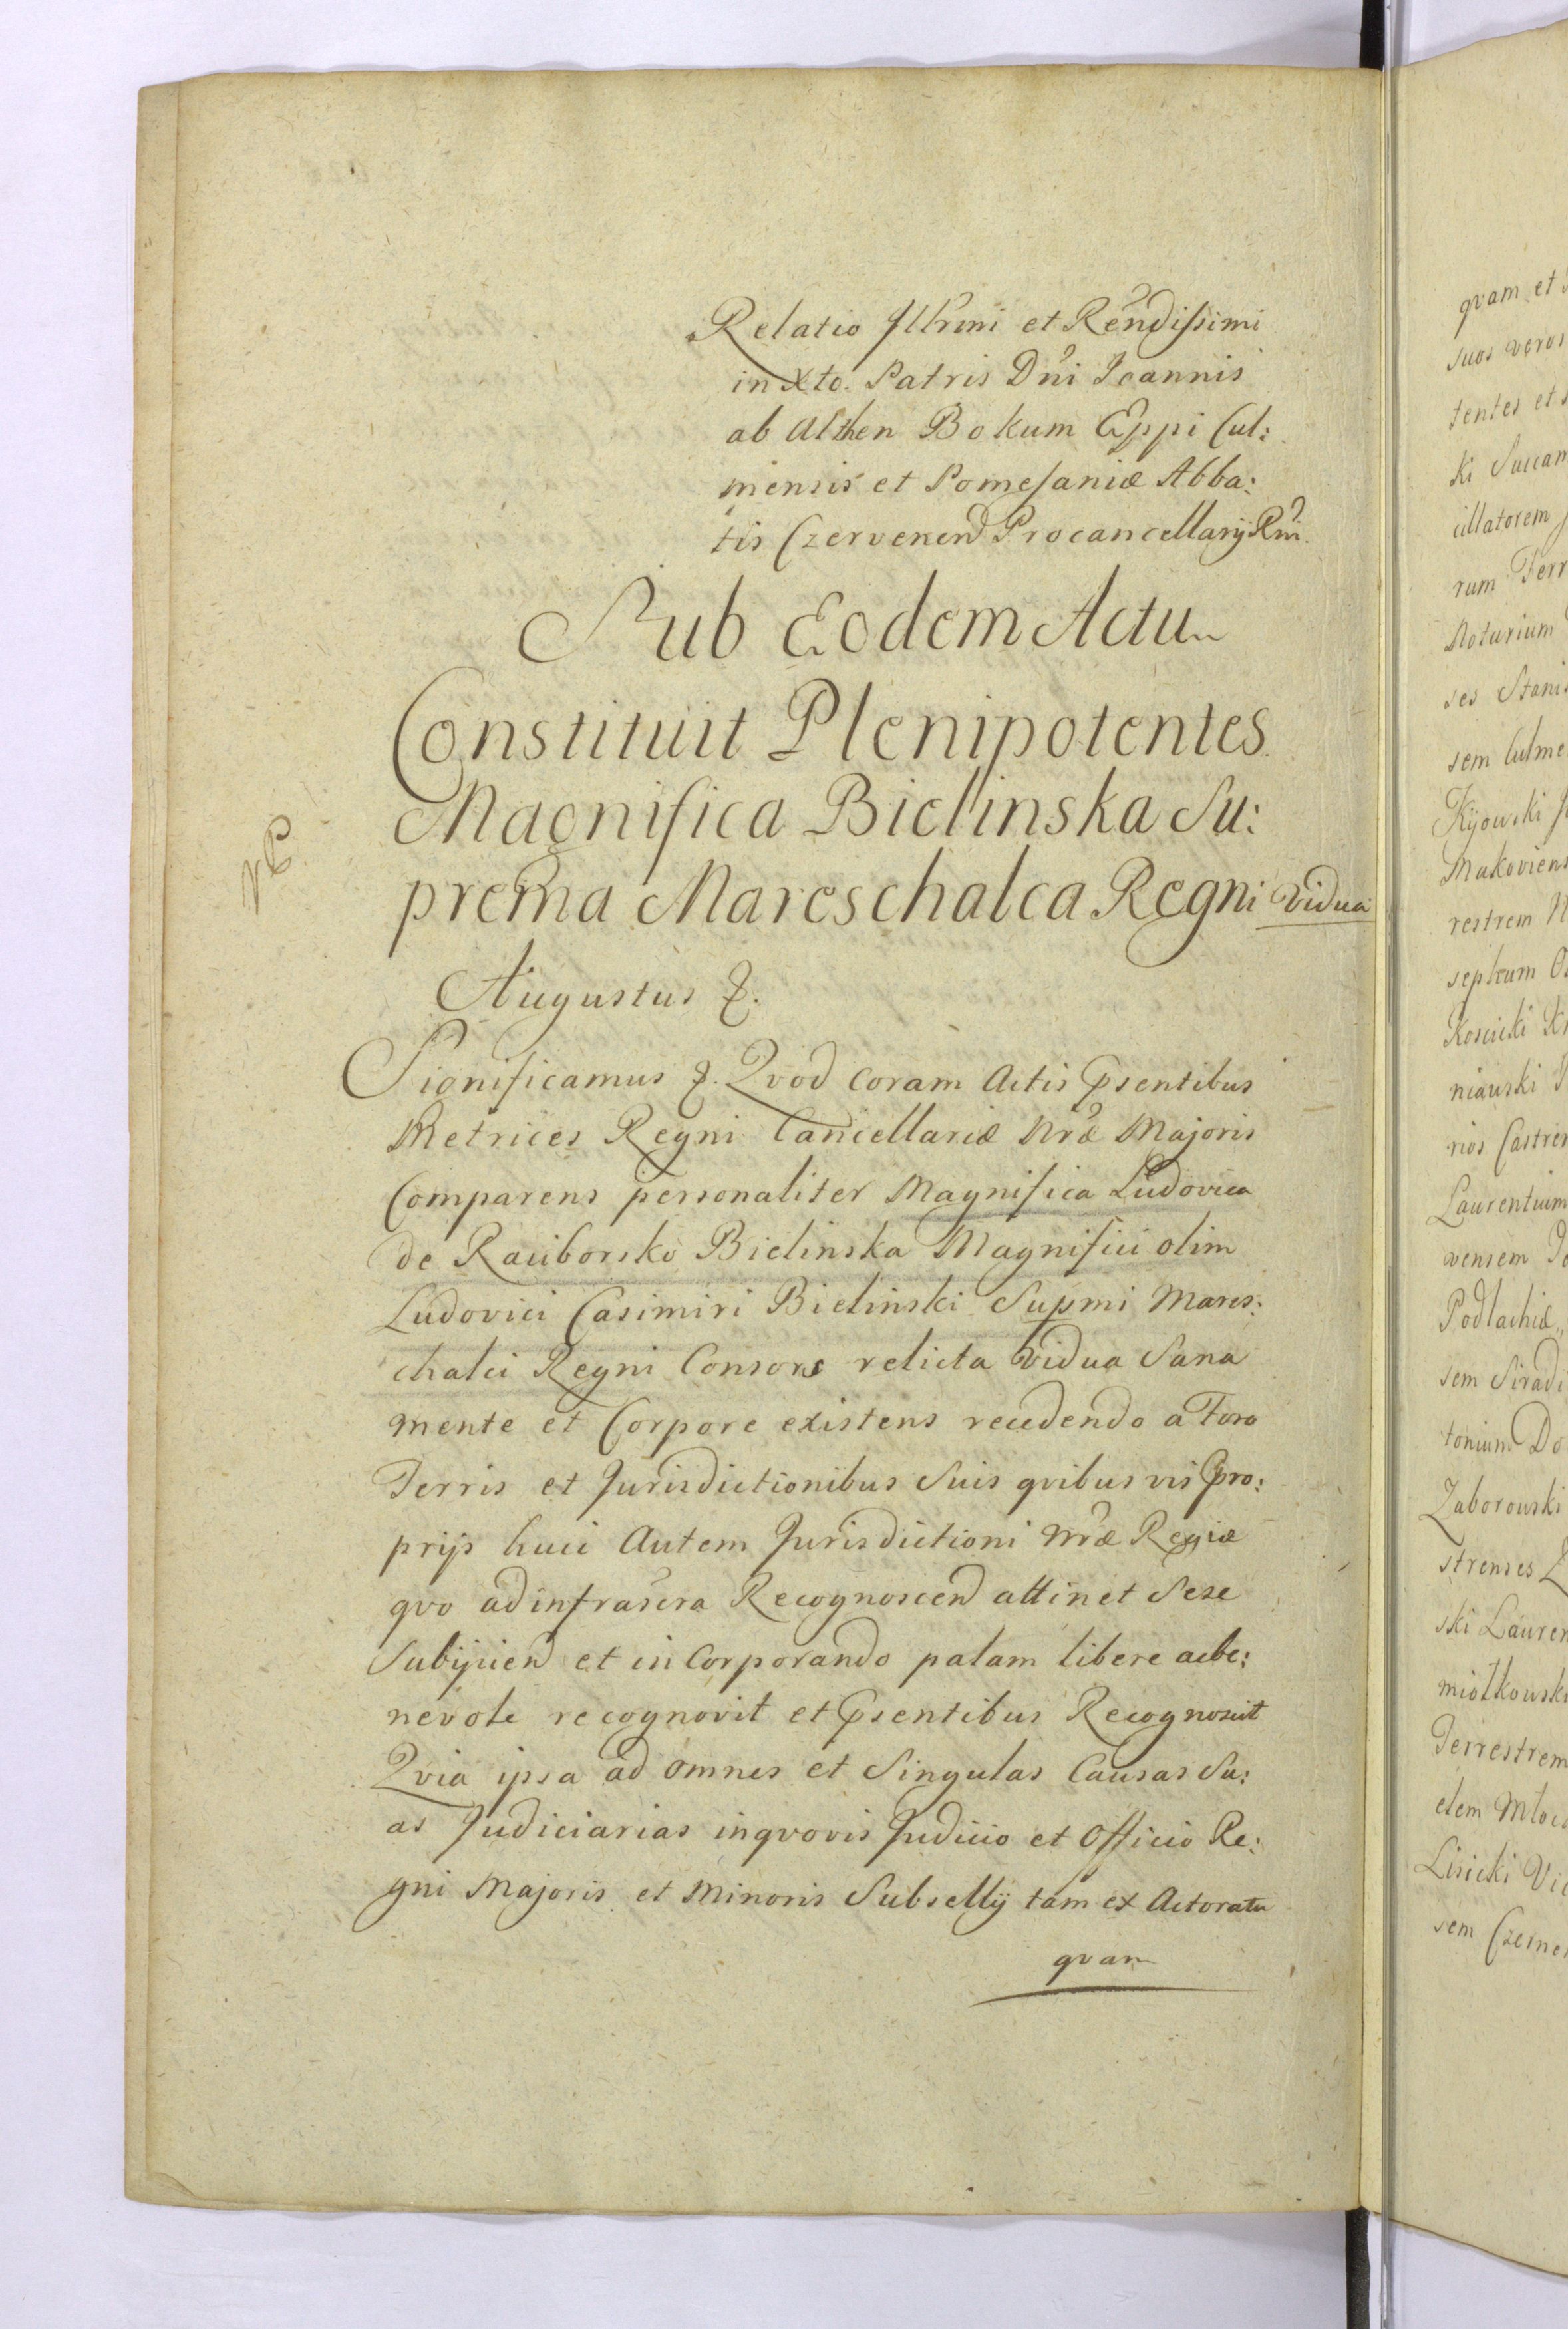 Relatio Illr̃mi et Rẽndissimi
in Xto. Patris Dñi Joannis
ab Althen Bokum Eppi Cul:
mensis et Pomesaniæ Abba:
tis Czervenen Procancellarij Rni.
Sub Eodem Actu
Constituit Plenipotentes
Magnifica Bielinska Su:
prema Mareschalca Regni vidua
NB
Augustus &.
Significamus &. Qvod coram Actis Psentibus
Metrices Regni Cancellariæ Nræ Majoris
Comparens personaliter Magnifica Ludovica
de Raciborsko Bielinska Magnifici olim
Ludovici Casimiri Bielinski Supmi Mares:
chalci Regni Consors relicta Vidua Sana
mente et Corpore existens recedendo a Foro
Terris et Jurisdictionibus Suis qvibus vis Pro:
prijs huic Autem Jurisdictioni Nræ Regiæ
qvo ad infrascra Recognoscen attinet Sese
Subijcien et in Corporando palam libere ac be:
nevole recognovit et Psentibus Recognoscit
Qvia ipsa ad omnes et Singulas Causas Su:
as Judiciarias in qvovis Judicio et Officio Re:
gni Majoris et Minoris Subsellij tam ex Actoratu
qvam
qvam et
suos veros
tentes et
ki Succam
cillatorem
rum Terr
Notarium
ses Stanis
sem Culme
Kijowski
Makoviens
restrem N
sephum Os
Koscicki
niawski
rios Castren
Laurentium
vensem
Podlachiæ
sem Siradi
tonium Do
Zaborowski
strenses
ski Lauren
miołkowski
Terrestrem
elem Młoc
Lisicki Vic
sem Czerne